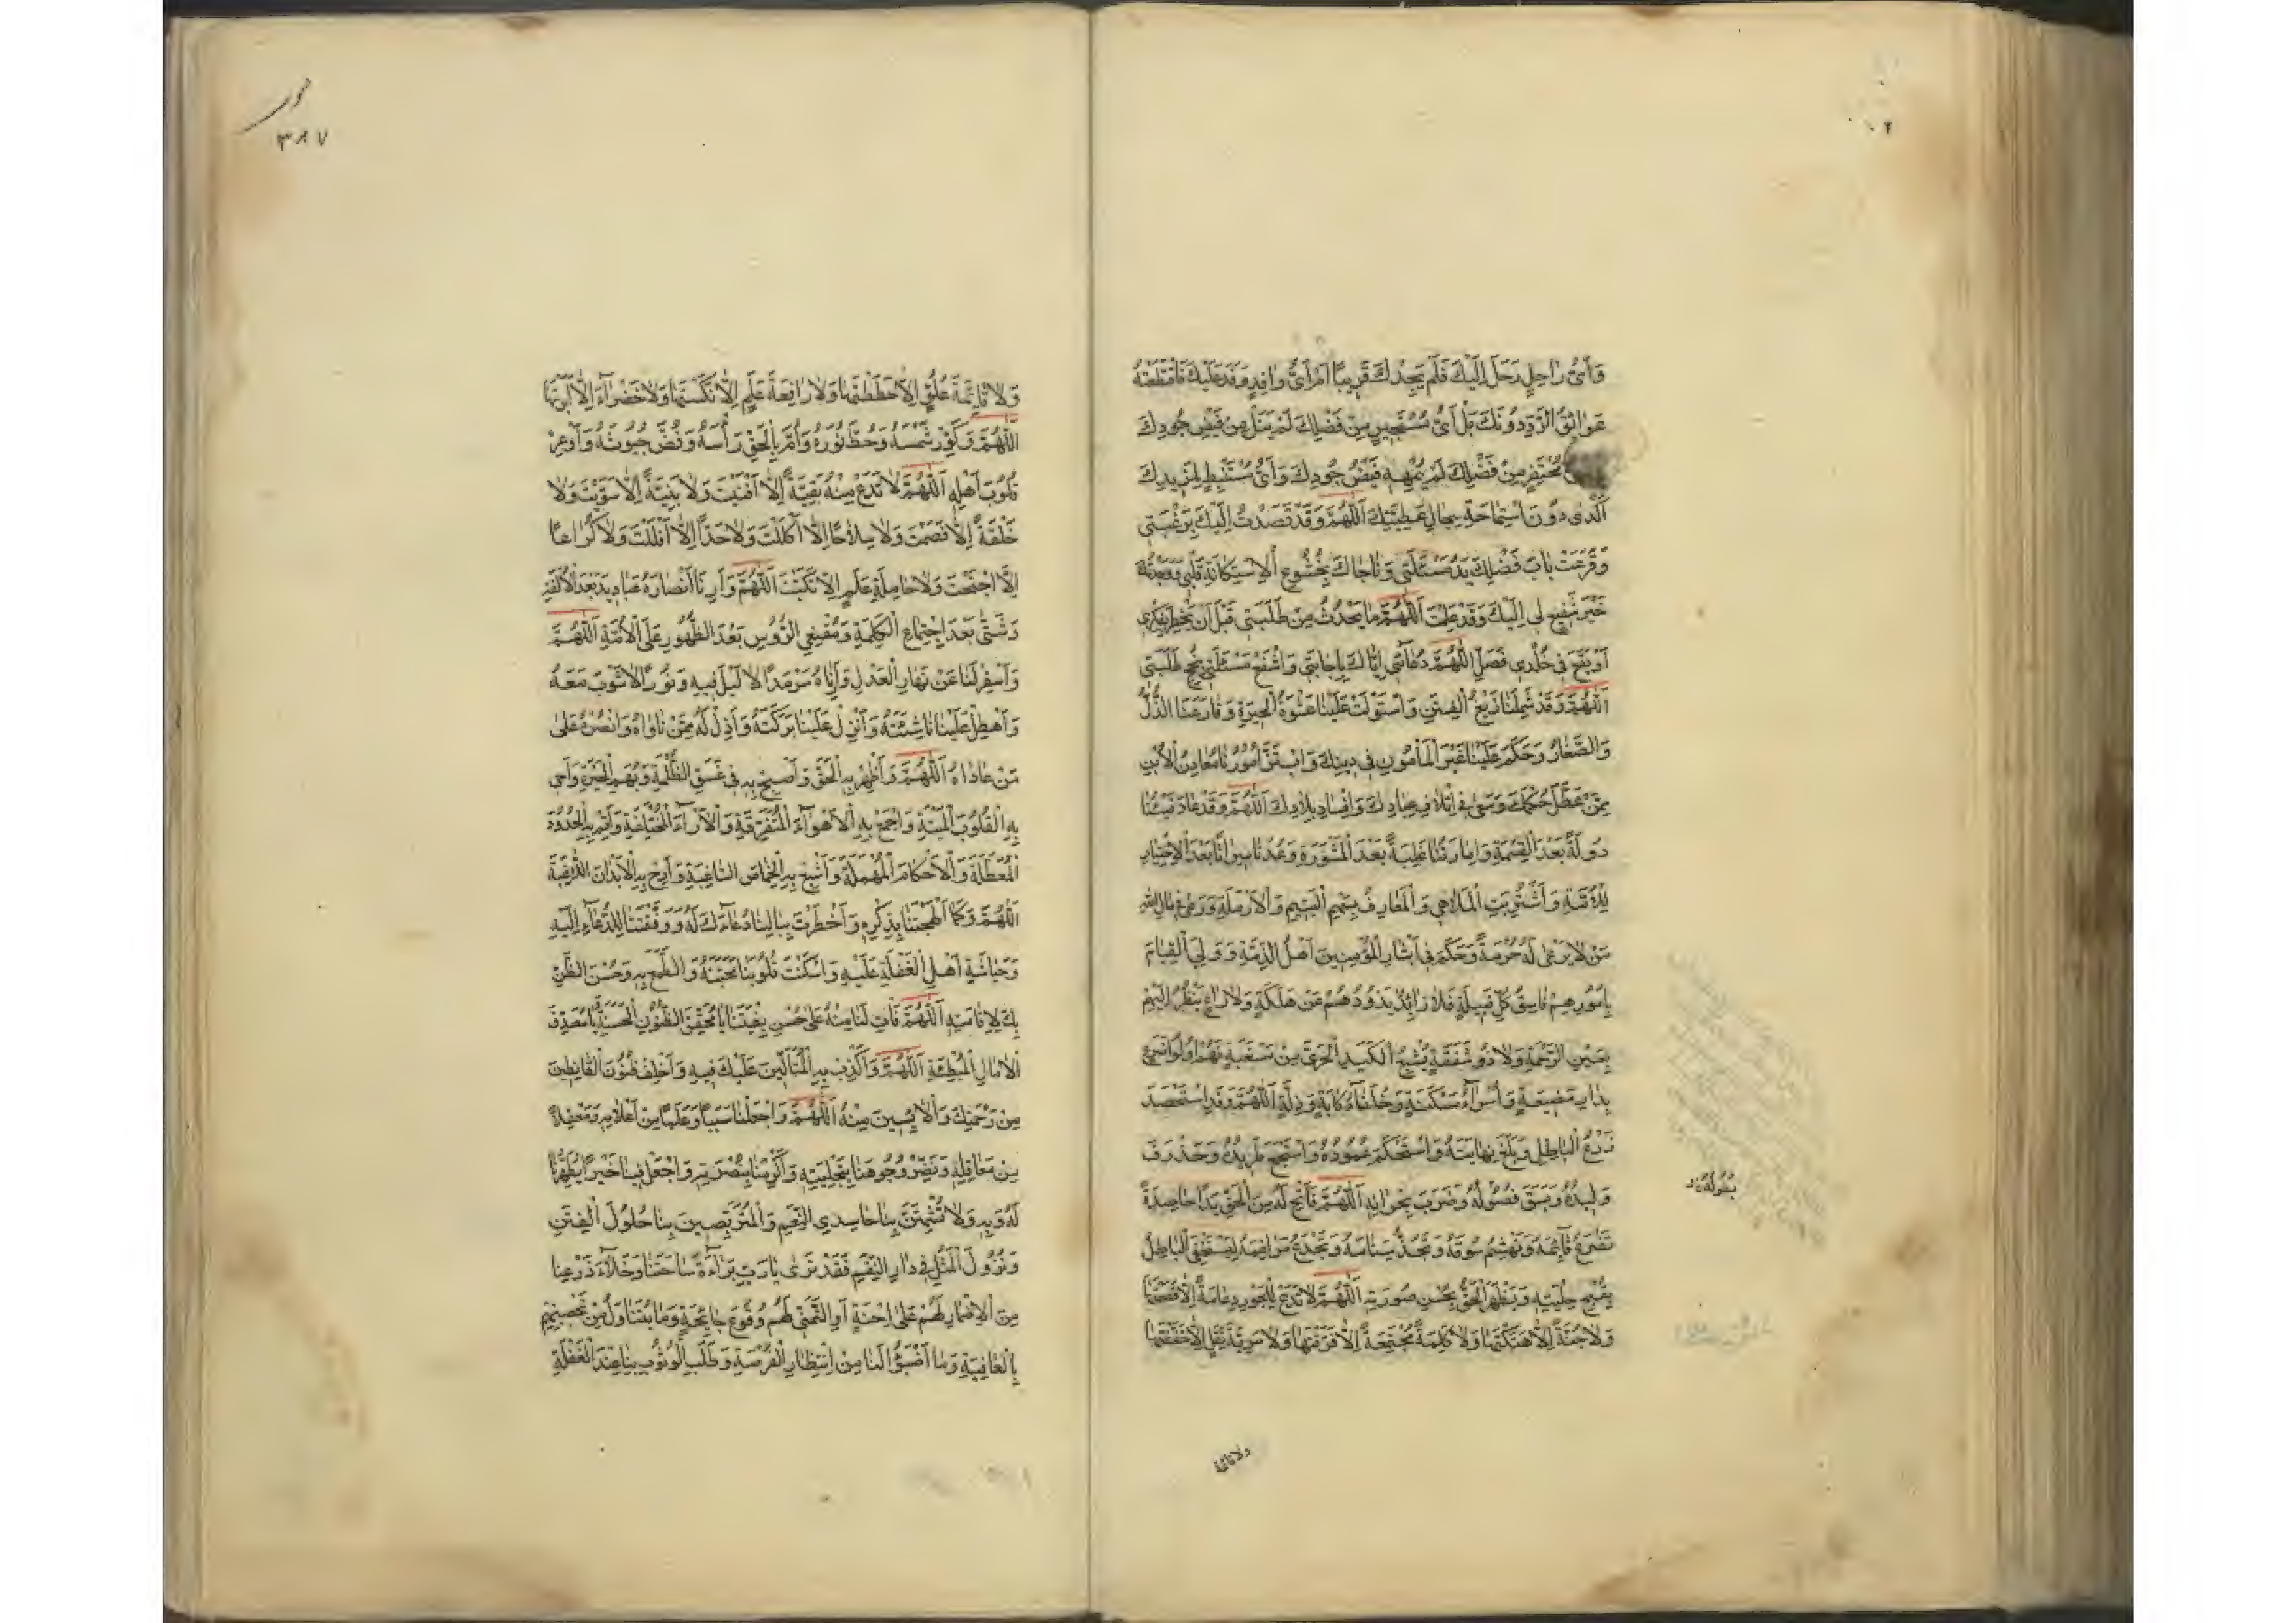 وَأَيُّ رَاحِلٍ رَحَلَ إِلَيْكَ فَلَمْ يَجِدْكَ قَرِيبًا أَمْ أَيُّ وَافِدٍ وَفَدَ عَلَيْكَ فَاقْتَطَعَتْهُ
عَوَائِقُ الرَّدِّ دُونَكَ بَلْ أَيُّ مُسْتَجِيرٍ مِنْ فَضْلِكَ لَمْ يَنَلْ مِنْ فَيْضِ جُودِكَ
مُحْتَفِرٍ مِنْ فَضْلِكَ لَمْ يُمْهِهِ فَيْضُ جُودِكَ وَأَيُّ مُسْتَنْبِطٍ لِمَزِيدِكَ
أَكْدَى دُونَ اسْتِمَاحَةِ سِجَالِ عَطِيَّتِكَ اللّٰهُمَّ وَقَدْ قَصَدْتُ إِلَيْكَ بِرَغْبَتِي
وَقَرَعَتْ بَابَ فَضْلِكَ يَدُ مَسْئَلَتِي وَنَاجَاكَ بِخُشُوعِ الْاِسْتِكَانَةِ قَلْبِي وَوَجَدْتُكَ
خَيْرَ شَفِيعٍ لِي إِلَيْكَ وَقَدْ عَلِمْتَ اللّٰهُمَّ مَا يَحْدُثُ مِنْ طَلِبَتِي قَبْلَ أَنْ يَخْطُرَ بِفِكْرِي
أَوْ يَقَعَ فِي خَلَدِي فَصِلِ اللّٰهُمَّ دُعَائِي إِيَّاكَ بِإِجَابَتِي وَاشْفَعْ مَسْئَلَتِي بِنُجْحِ طَلِبَتِي
اللّٰهُمَّ وَقَدْ شَمِلَنَا زَيْغُ الْفِتَنِ وَاسْتَوْلَتْ عَلَيْنَا غَشْوَةُ الْحَيْرَةِ وَقَارَعَنَا الذُّلُّ
وَالصَّغَارُ وَحَكَمَ عَلَيْنَا غَيْرُ الْمَأْمُونِينَ فِي دِينِكَ وَابْتَزَّ أُمُورَنَا مَعَادِنُ الْأُبَنِ
مِمَّنْ عَطَّلَ حُكْمَكَ وَسَعَى فِي إِتْلَافِ عِبَادِكَ وَإِفْسَادِ بِلَادِكَ اللّٰهُمَّ وَقَدْ عَادَ فَيْئُنَا
دُولَةً بَعْدَ الْقِسْمَةِ وَإِمَارَتُنَا غَلَبَةً بَعْدَ الْمَشْوَرَةِ وَعُدْنَا مِيرَاثًا بَعْدَ الْاِخْتِيَارِ
لِلْأُمَّةِ وَاشْتُرِيَتِ الْمَلَاهِي وَالْمَعَازِفُ بِسَهْمِ الْيَتِيمِ وَالْأَرْمَلَةِ وَرَعَى فِي مَالِ اللهِ
مَنْ لَا يَرْعَى لَهُ حُرْمَةً وَحَكَمَ فِي أَبْشَارِ الْمُؤْمِنِينَ أَهْلُ الذِّمَّةِ وَوَلِيَ الْقِيَامَ
بِأُمُورِهِمْ فَاسِقُ كُلِّ قَبِيلَةٍ فَلَا ذَائِدَ يَذُودُهُمْ عَنْ هَلَكَةٍ وَلَا رَاعٍ يَنْظُرُ إِلَيْهِمْ
بِعَيْنِ الرَّحْمَةِ وَلَا ذُو شَفَقَةٍ يُشْبِعُ الْكَبِدَ الْحَرَّى مِنْ مَسْغَبَةٍ فَهُمْ أُولُوا ضَرَعٍ
بِدَارِ مَضِيعَةٍ وَأُسَرَاءُ مَسْكَنَةٍ وَحُلَفَاءُ كَآبَةٍ وَذِلَّةٍ اللّٰهُمَّ وَقَدِ اسْتَحْصَدَ
زَرْعُ الْبَاطِلِ وَبَلَغَ نِهَايَتَهُ وَاسْتَحْكَمَ عَمُودُهُ وَاسْتَجْمَعَ طَرِيدُهُ وَخَذْرَفَ
وَلِيدُهُ وَبَسَقَ فُصُولُهُ وَضَرَبَ بِجِرَانِهِ اللّٰهُمَّ فَأَتِحْ لَهُ مِنَ الْحَقِّ يَدًا حَاصِدَةً
تَصْرَعُ قَائِمَهُ وَتَهْشِمُ سُوقَهُ وَتَجُذُّ سَنَامَهُ وَتَجْدَعُ مَرَاغِمَهُ لِيَسْتَخْفِيَ الْبَاطِلُ
بِقُبْحِ حِلْيَتِهِ وَيَظْهَرَ الْحَقُّ بِحُسْنِ صُورَتِهِ اللّٰهُمَّ لَا تَدَعْ لِلْجَوْرِ دِعَامَةً إِلَّا قَصَمْتَهَا
وَلَا جُنَّةً إِلَّا هَتَكْتَهَا وَلَا كَلِمَةً مُجْتَمِعَةً إِلَّا فَرَّقْتَهَا وَلَا سَرِيَّةَ ثِقَلٍ إِلَّا خَفَّفْتَهَا
ولا قائمة
٣٨٧
وَلَا قَائِمَةَ عُلُوٍّ إِلَّا حَطَطْتَهَا وَلَا رَافِعَةَ عَلَمٍ إِلَّا نَكَسْتَهَا وَلَا خَضْرَاءَ إِلَّا أَبَرْتَهَا
اللّٰهُمَّ وَكَوِّرْ شَمْسَهُ وَحُطَّ نُورَهُ وَأُمَّ بِالْحَقِّ رَأْسَهُ وَفُضَّ جُيُوشَهُ وَأَوْعِرْ
قُلُوبَ أَهْلِهِ اللّٰهُمَّ لَا تَدَعْ مِنْهُ بَقِيَّةً إِلَّا أَفْنَيْتَ وَلَا بَنِيَّةً إِلَّا سَوَّيْتَ وَلَا
حَلْقَةً إِلَّا قَصَمْتَ وَلَا سِلَاحًا إِلَّا أَكْلَلْتَ وَلَا حَدًّا إِلَّا أَفْلَلْتَ وَلَا كُرَاعًا
إِلَّا اجْتَحْتَ وَلَا حَامِلَةَ عَلَمٍ إِلَّا نَكَبْتَ اللّٰهُمَّ وَأَرِنَا أَنْصَارَهُ عَبَادِيدَ بَعْدَ الْأُلْفَةِ
وَشَتَّى بَعْدَ اجْتِمَاعِ الْكَلِمَةِ وَمُقْنِعِي الرُّؤُسِ بَعْدَ الظُّهُورِ عَلَى الْأُمَّةِ اللّٰهُمَّ
وَأَسْفِرْ لَنَا عَنْ نَهَارِ الْعَدْلِ وَأَرِنَاهُ سَرْمَدًا لَا لَيْلَ فِيهِ وَنُورًا لَا شَوْبَ مَعَهُ
وَأَهْطِلْ عَلَيْنَا نَاشِئَتَهُ وَأَنْزِلْ عَلَيْنَا بَرَكَتَهُ وَأَدِلْ لَهُ مِمَّنْ نَاوَاهُ وَانْصُرْهُ عَلَى
مَنْ عَادَاهُ اللّٰهُمَّ وَأَظْهِرْ بِهِ الْحَقَّ وَأَصْبِحْ بِهِ فِي غَسَقِ الظُّلْمَةِ وَبُهَمِ الْحَيْرَةِ وَأَحْيِ
بِهِ الْقُلُوبَ الْمَيِّتَةَ وَاجْمَعْ بِهِ الْأَهْوَاءَ الْمُتَفَرِّقَةَ وَالْآرَاءَ الْمُخْتَلِفَةَ وَأَقِمْ بِهِ الْحُدُودَ
الْمُعَطَّلَةَ وَالْأَحْكَامَ الْمُهْمَلَةَ وَأَشْبِعْ بِهِ الْخِمَاصَ السَّاغِبَةَ وَأَرِحْ بِهِ الْأَبْدَانَ اللَّاغِبَةَ
اللّٰهُمَّ وَكَمَا أَلْهَجْتَنَا بِذِكْرِهِ وَأَخْطَرْتَ بِبَالِنَا دُعَاءَكَ لَهُ وَوَفَّقْتَنَا لِلدُّعَاءِ إِلَيْهِ
وَحِيَاشَةِ أَهْلِ الْغَفْلَةِ عَلَيْهِ وَأَسْكَنْتَ قُلُوبَنَا مَحَبَّتَهُ وَالطَّمَعَ بِهِ وَحُسْنَ الظَّنِّ
بِكَ لِإِقَامَتِهِ اللّٰهُمَّ فَآتِ لَنَا مِنْهُ عَلَى حُسْنِ يَقِينِنَا يَا مُحَقِّقَ الظُّنُونِ الْحَسَنَةِ يَا مُصَدِّقَ
الْآمَالِ الْمُبْطِئَةِ اللّٰهُمَّ وَأَكْذِبْ بِهِ الْمُتَأَلِّينَ عَلَيْكَ فِيهِ وَأَخْلِفْ ظُنُونَ الْقَانِطِينَ
مِنْ رَحْمَتِكَ وَالْآيِسِينَ مِنْهُ اللّٰهُمَّ وَاجْعَلْنَا سَبَبًا وَعَلَمًا مِنْ أَعْلَامِهِ وَمَعْقِلًا
مِنْ مَعَاقِلِهِ وَنَضِّرْ وُجُوهَنَا بِتَحْلِيَتِهِ وَأَكْرِمْنَا بِنُصْرَتِهِ وَاجْعَلْ فِينَا خَيْرًا يُظْهِرُنَا
لَهُ وَبِهِ وَلَا تُشْمِتَنَّ بِنَا حَاسِدِي النِّعَمِ وَالْمُتَرَبِّصِينَ بِنَا حُلُولَ الْفِتَنِ
وَنُزُولَ الْمَثُلِ فِي دَارِ النِّقَمِ فَقَدْ تَرَى يَا رَبِّ بَرَاءَةَ سَاحَتِنَا وَخَلَاءَ ذَرْعِنَا
مِنَ الْإِضْمَارِ لَهُمْ عَلَى إِحْنَةٍ أَوِ التَّمَنِّي لَهُمْ وُقُوعَ جَائِحَةٍ وَمَا يَتَنَاوَلُ مِنْ تَحْصِينِهِمْ
بِالْعَافِيَةِ وَمَا أَضْبَؤُا لَنَا مِنِ انْتِظَارِ الْفُرْصَةِ وَطَلَبِ الْوُثُوبِ بِنَا عِنْدَ الْغَفْلَةِ